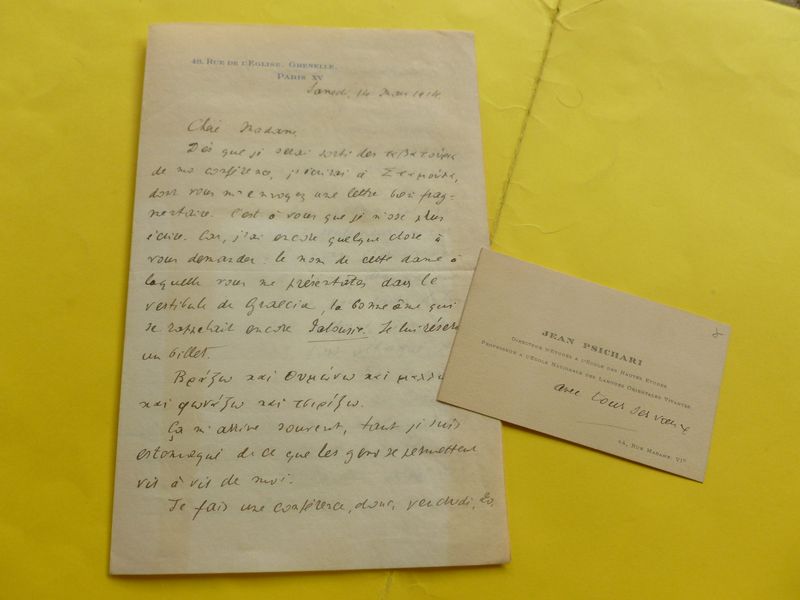 48, Rue de l'Eglise, Grenelle.
Paris XV
Samedi, 14 Mars 1914.
Chère Madame,
Dès que je serai sorti des
de ma conférence, j'écrirai à Σταμούλη,
dont vous m'envoyez une lettre bien frag-
mentaire. C'est à vous que je n'ose plus
écrire. Car, j'ai encore quelque chose à
vous demander: le nom de cette dame à
laquelle vous me présentâtes dans le
vestibule de Graecia, la bonne âme qui
se rappelait encore Jalousie. Je lui réserve
un billet.
Βράζω και θυμώνω και μαλλώ
και φωνάζω και τσιρίζω.
Ça m'arrive souvent, tant je suis
estomaqué de ce que les gens se permettent
vis à vis de moi.
Je fais une conférence, donc, vendredi, 20.
JEAN PSICHARI
Directeur d'études a l'École des Hautes Études
Professeur a l'École Nationale des Langues Orientales Vivantes
avec tous ses vœux
Rue Madame, VIe